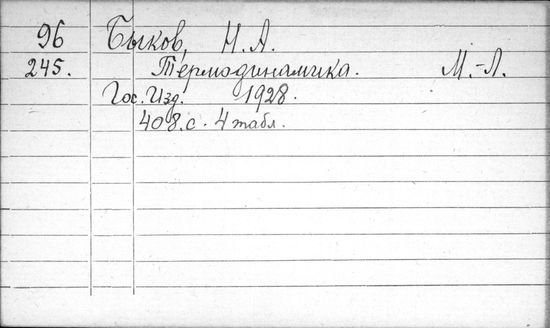 96 Быков, Н. А.
245. Термодинамика. М.-Л.
Гос. Изд. 1928.
408.с. 4 табл.